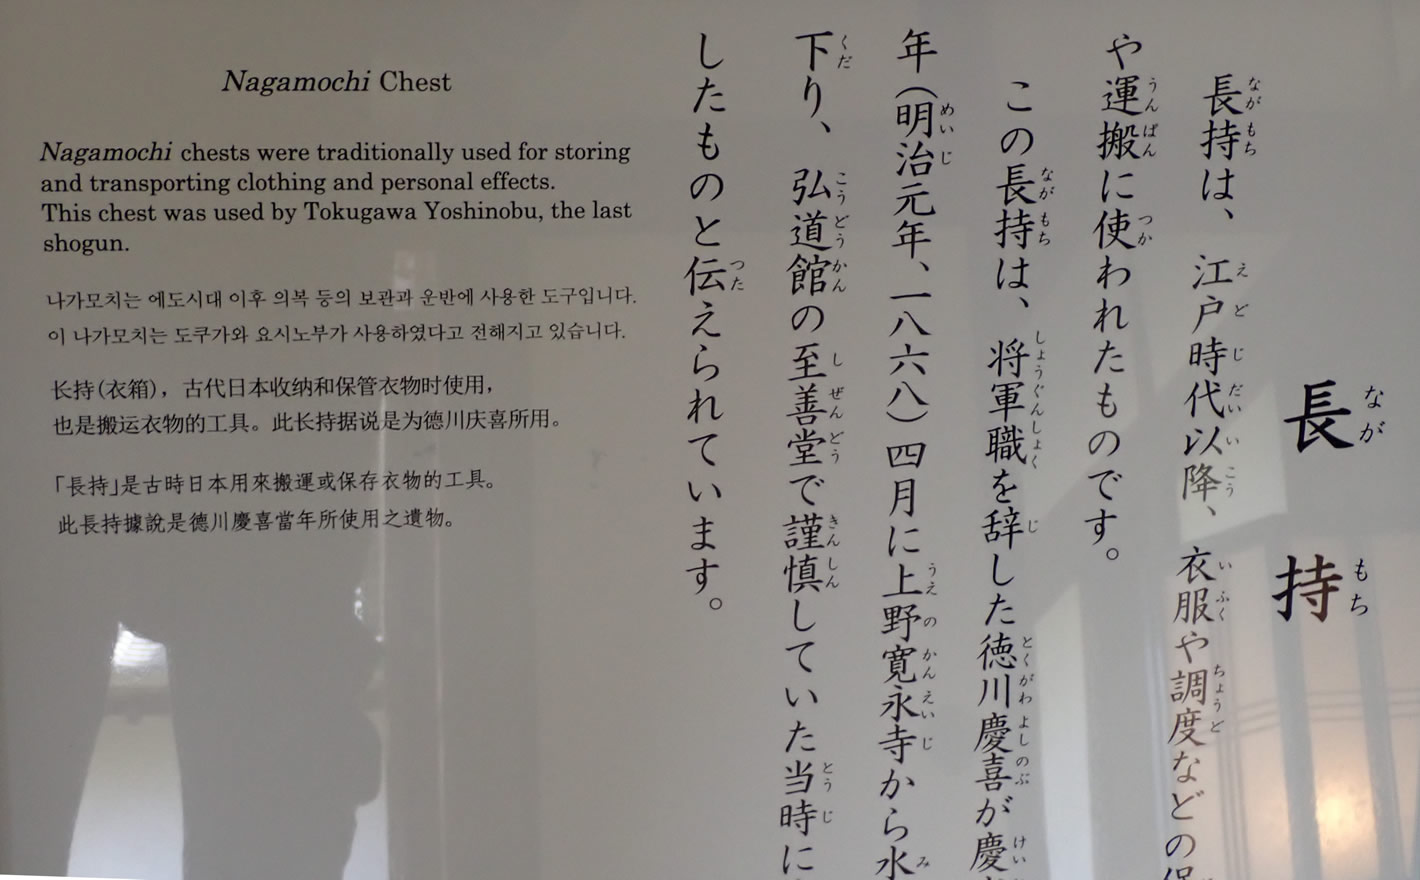 Nagamochi Chest
Nagamochi chests were traditionally used for storing
and transporting clothing and personal effects.
This chest was used by Tokugawa Yoshinobu, the last
shogun.
나가모치는 에도시대 이후 의복 등의 보관과 운반에 사용한 도구입니다.
이 나가모치는 도쿠가와 요시노부가 사용하였다고 전해지고 있습니다.
长持(衣箱)，古代日本收纳和保管衣物时使用，
也是搬运衣物的工具。此长持据说是为德川庆喜所用。
「長持」是古時日本用來搬運或保存衣物的工具。
此長持據說是德川慶喜當年所使用之遺物。
長持
長持は、江戸時代以降、衣服や調度などの
や運搬に使われたものです。
この長持は、将軍職を辞した徳川慶喜が慶
年（明治元年、一八六八）四月に上野寛永寺から水
下り、弘道館の至善堂で謹慎していた当時に
したものと伝えられています。